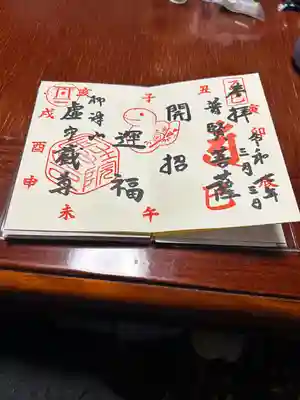 奉拝
令和
辰年
三月三日
普賢菩薩
開運
招福
御詩山
虚空蔵尊
子
丑
寅
卯
辰
巳
午
未
申
酉
戌
亥